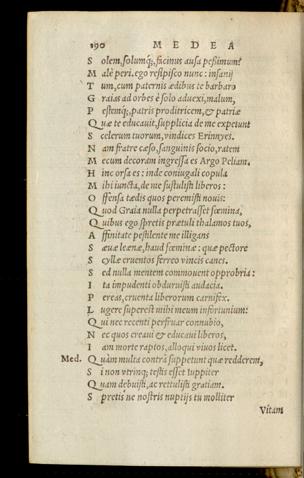 190 MEDEA
S olem, solumq́;, facinus ausa pessimum?
M alè peri. ego resipisco nunc: insanij
T um, cum paternis ædibus te barbaro
G raias ad orbes è solo aduexi, malum,
P estemq́;, patris proditricem, & patriæ
Q uæ te educauit, supplicia de me expetunt
S celerum tuorum, vindices Erinnyes.
N am fratre cæso, sanguinis socio, ratem
M ecum decoram ingressa es Argo Peliam.
H inc orsa es: inde coniugali copula
M ihi iuncta, de me sustulisti liberos:
O ffensa tædis quos peremisti nouis:
Q uod Graia nulla perpetrasset fœmina,
Q uibus ego spretis prætuli thalamos tuos,
A ffinitate pestilente me illigans
S æuæ leænæ, haud fœminæ: quæ pectore
S cyllæ cruentos ferreo vincis canes.
S ed nulla mentem commouent opprobria:
I ta impudenti obduruisti audacia.
P ereas, cruenta liberorum carnifex.
L ugere superest mihi meum infortunium:
Q ui nec recenti perfruar connubio,
N ec quos creaui & educaui liberos,
I am morte raptos, alloqui viuos licet.
Med. Q uàm multa contrà suppetunt quæ redderem,
S i non vtrinq; testis esset Iuppiter
Q uam debuisti, ac rettulisti gratiam.
S pretis ne nostris nuptijs tu molliter
Vitam